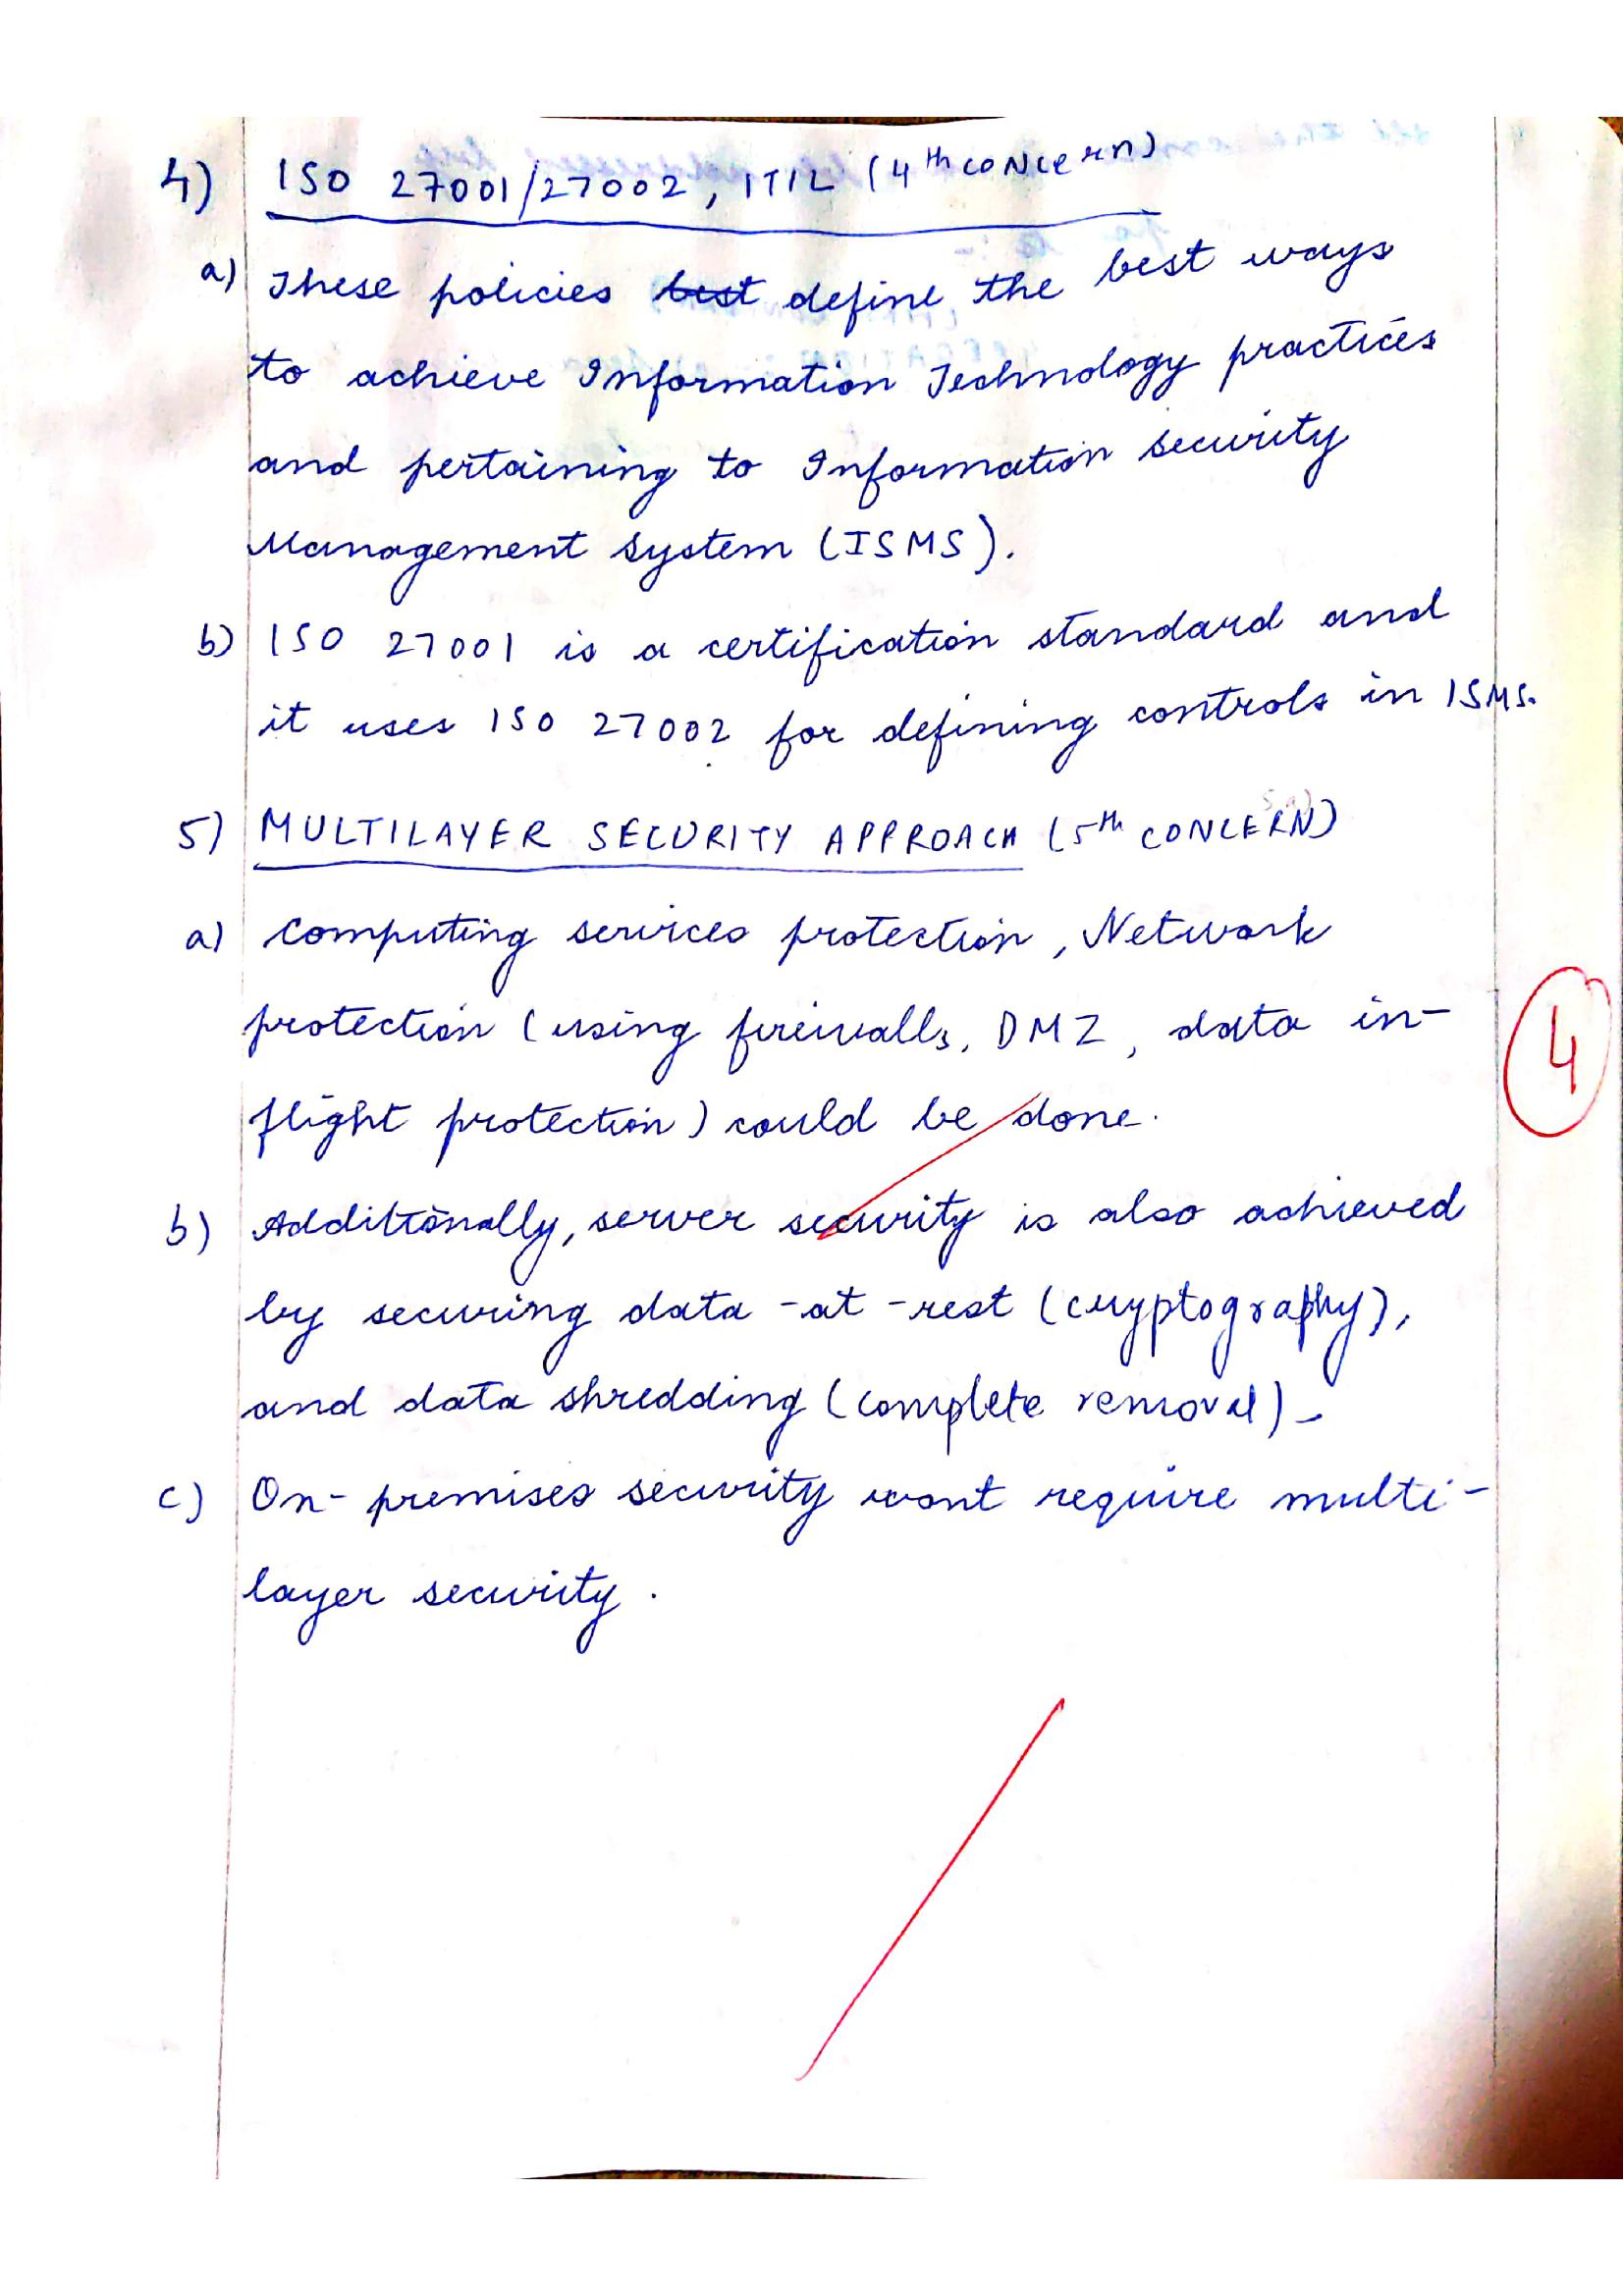 4) ISO 27001/27002, ITIL (4th CONCERN)
a) These policies best define the best ways
to achieve Information Technology practices
and pertaining to Information security
Management system (ISMS).
b) ISO 27001 is a certification standard and
it uses ISO 27002 for defining controls in ISMS.
5) MULTILAYER SECURITY APPROACH (5th CONCERN)
a) Computing services protection, Network
protection (using firewalls, DMZ, data in-
flight protection) could be done.
4
b) Additionally, server security is also achieved
by securing data -at -rest (cryptography),
and data shredding (complete removal).
c) On-premises security wont require multi-
layer security.